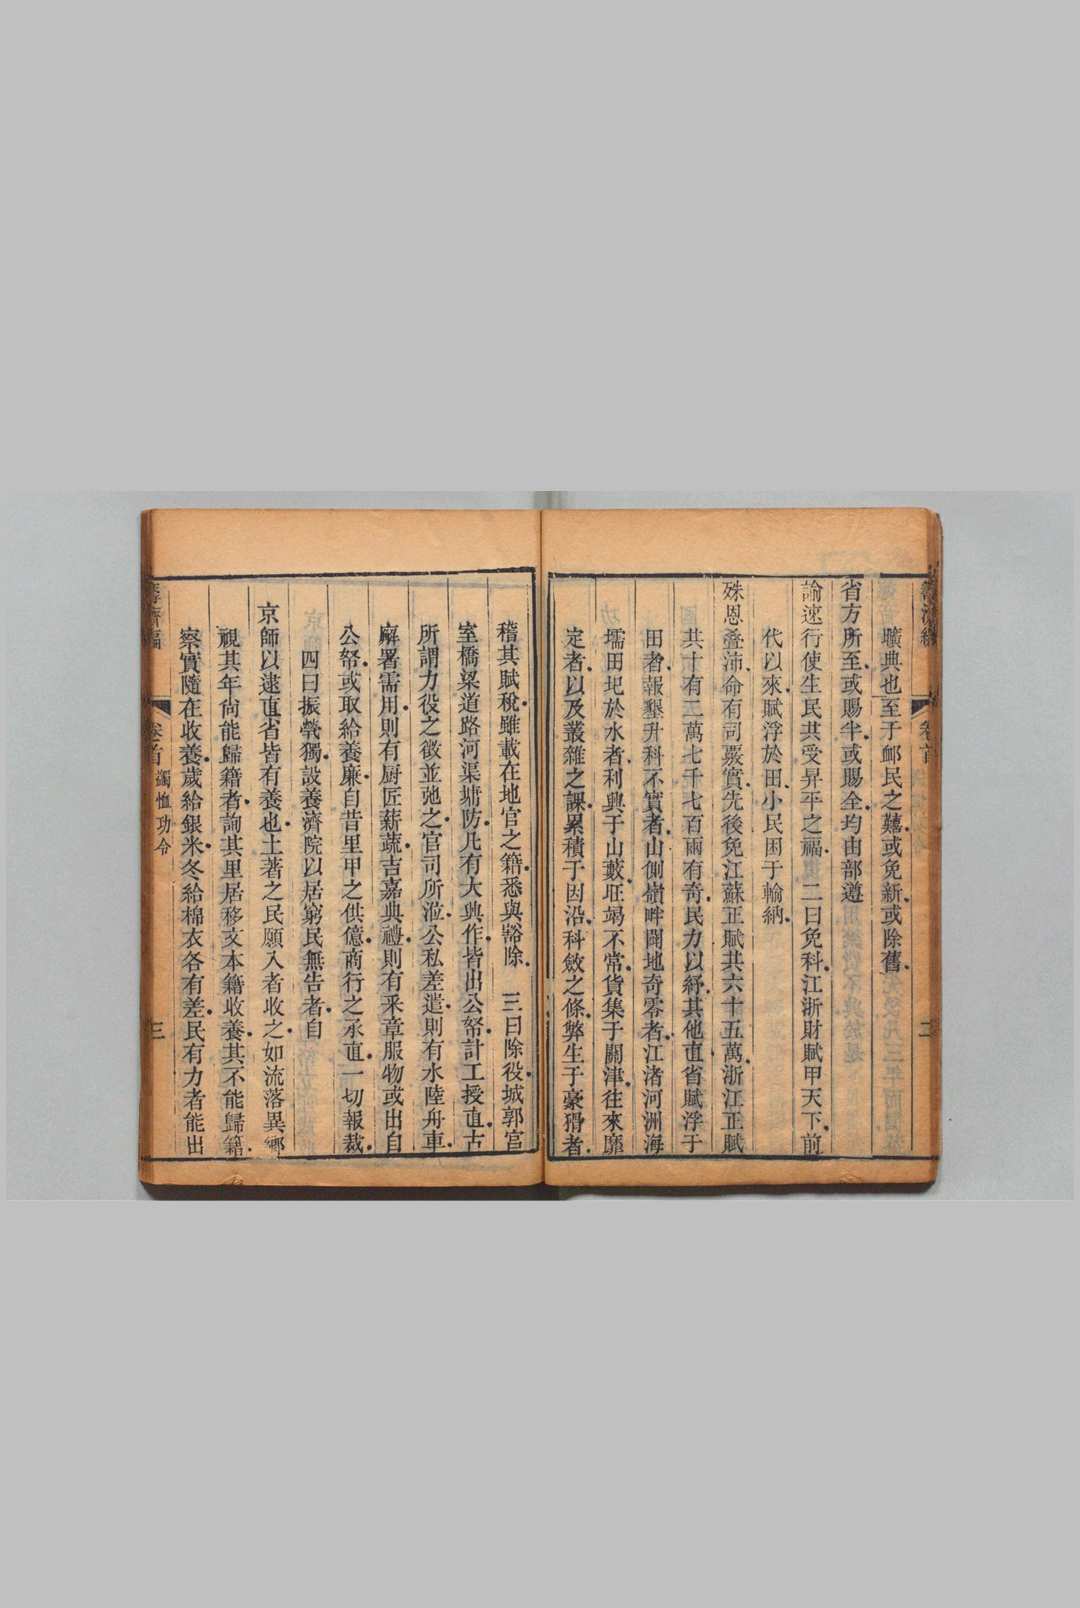 曠典也至于邮民之囏或免新或除舊
省方所至或賜半或賜全均由部遵
諭速行使生民共受昇平之福 二曰免科江浙財賦甲天下前
代以來賦浮於田小民困于輸納
殊恩疊沛命有司覈實先後免江蘇正賦共六十五萬浙江正賦
共十有二萬七千七百兩有奇民力以紓其他直省賦浮于
田者報墾升科不實者山側嶺畔闢地奇零者江渚河洲海
壖田圮於水者利興于山藪旺竭不常貨集于關津往來靡
定者以及叢雜之課累積于因沿科斂之條弊生于豪猾者
二
稽其賦稅雖載在地官之籍悉與豁除 三曰除役城郭宮
室橋梁道路河渠墉防凡有大興作皆出公帑計工授直古
所謂力役之徵並弛之官司所涖公私差遣則有水陸舟車
廨署需用則有厨匠薪蔬吉嘉典禮則有采章服物或出自
公帑或取給養廉自昔里甲之供億商行之承直一切報裁
四曰振煢獨設養濟院以居窮民無告者自
京師以逮直省皆有養也土著之民願入者收之如流落異鄉
視其年尙能歸籍者詢其里居移文本籍收養其不能歸籍
察實隨在收養歲給銀米冬給棉衣各有差民有力者能出
卷首 蠲恤功令 三